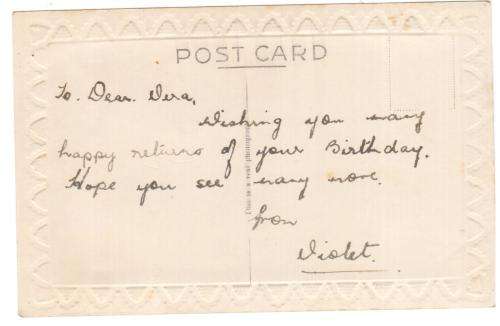 POST CARD
To. Dear. Vera,
Wishing you many
happy returns of your Birthday.
Hope you see many more.
from
Violet.